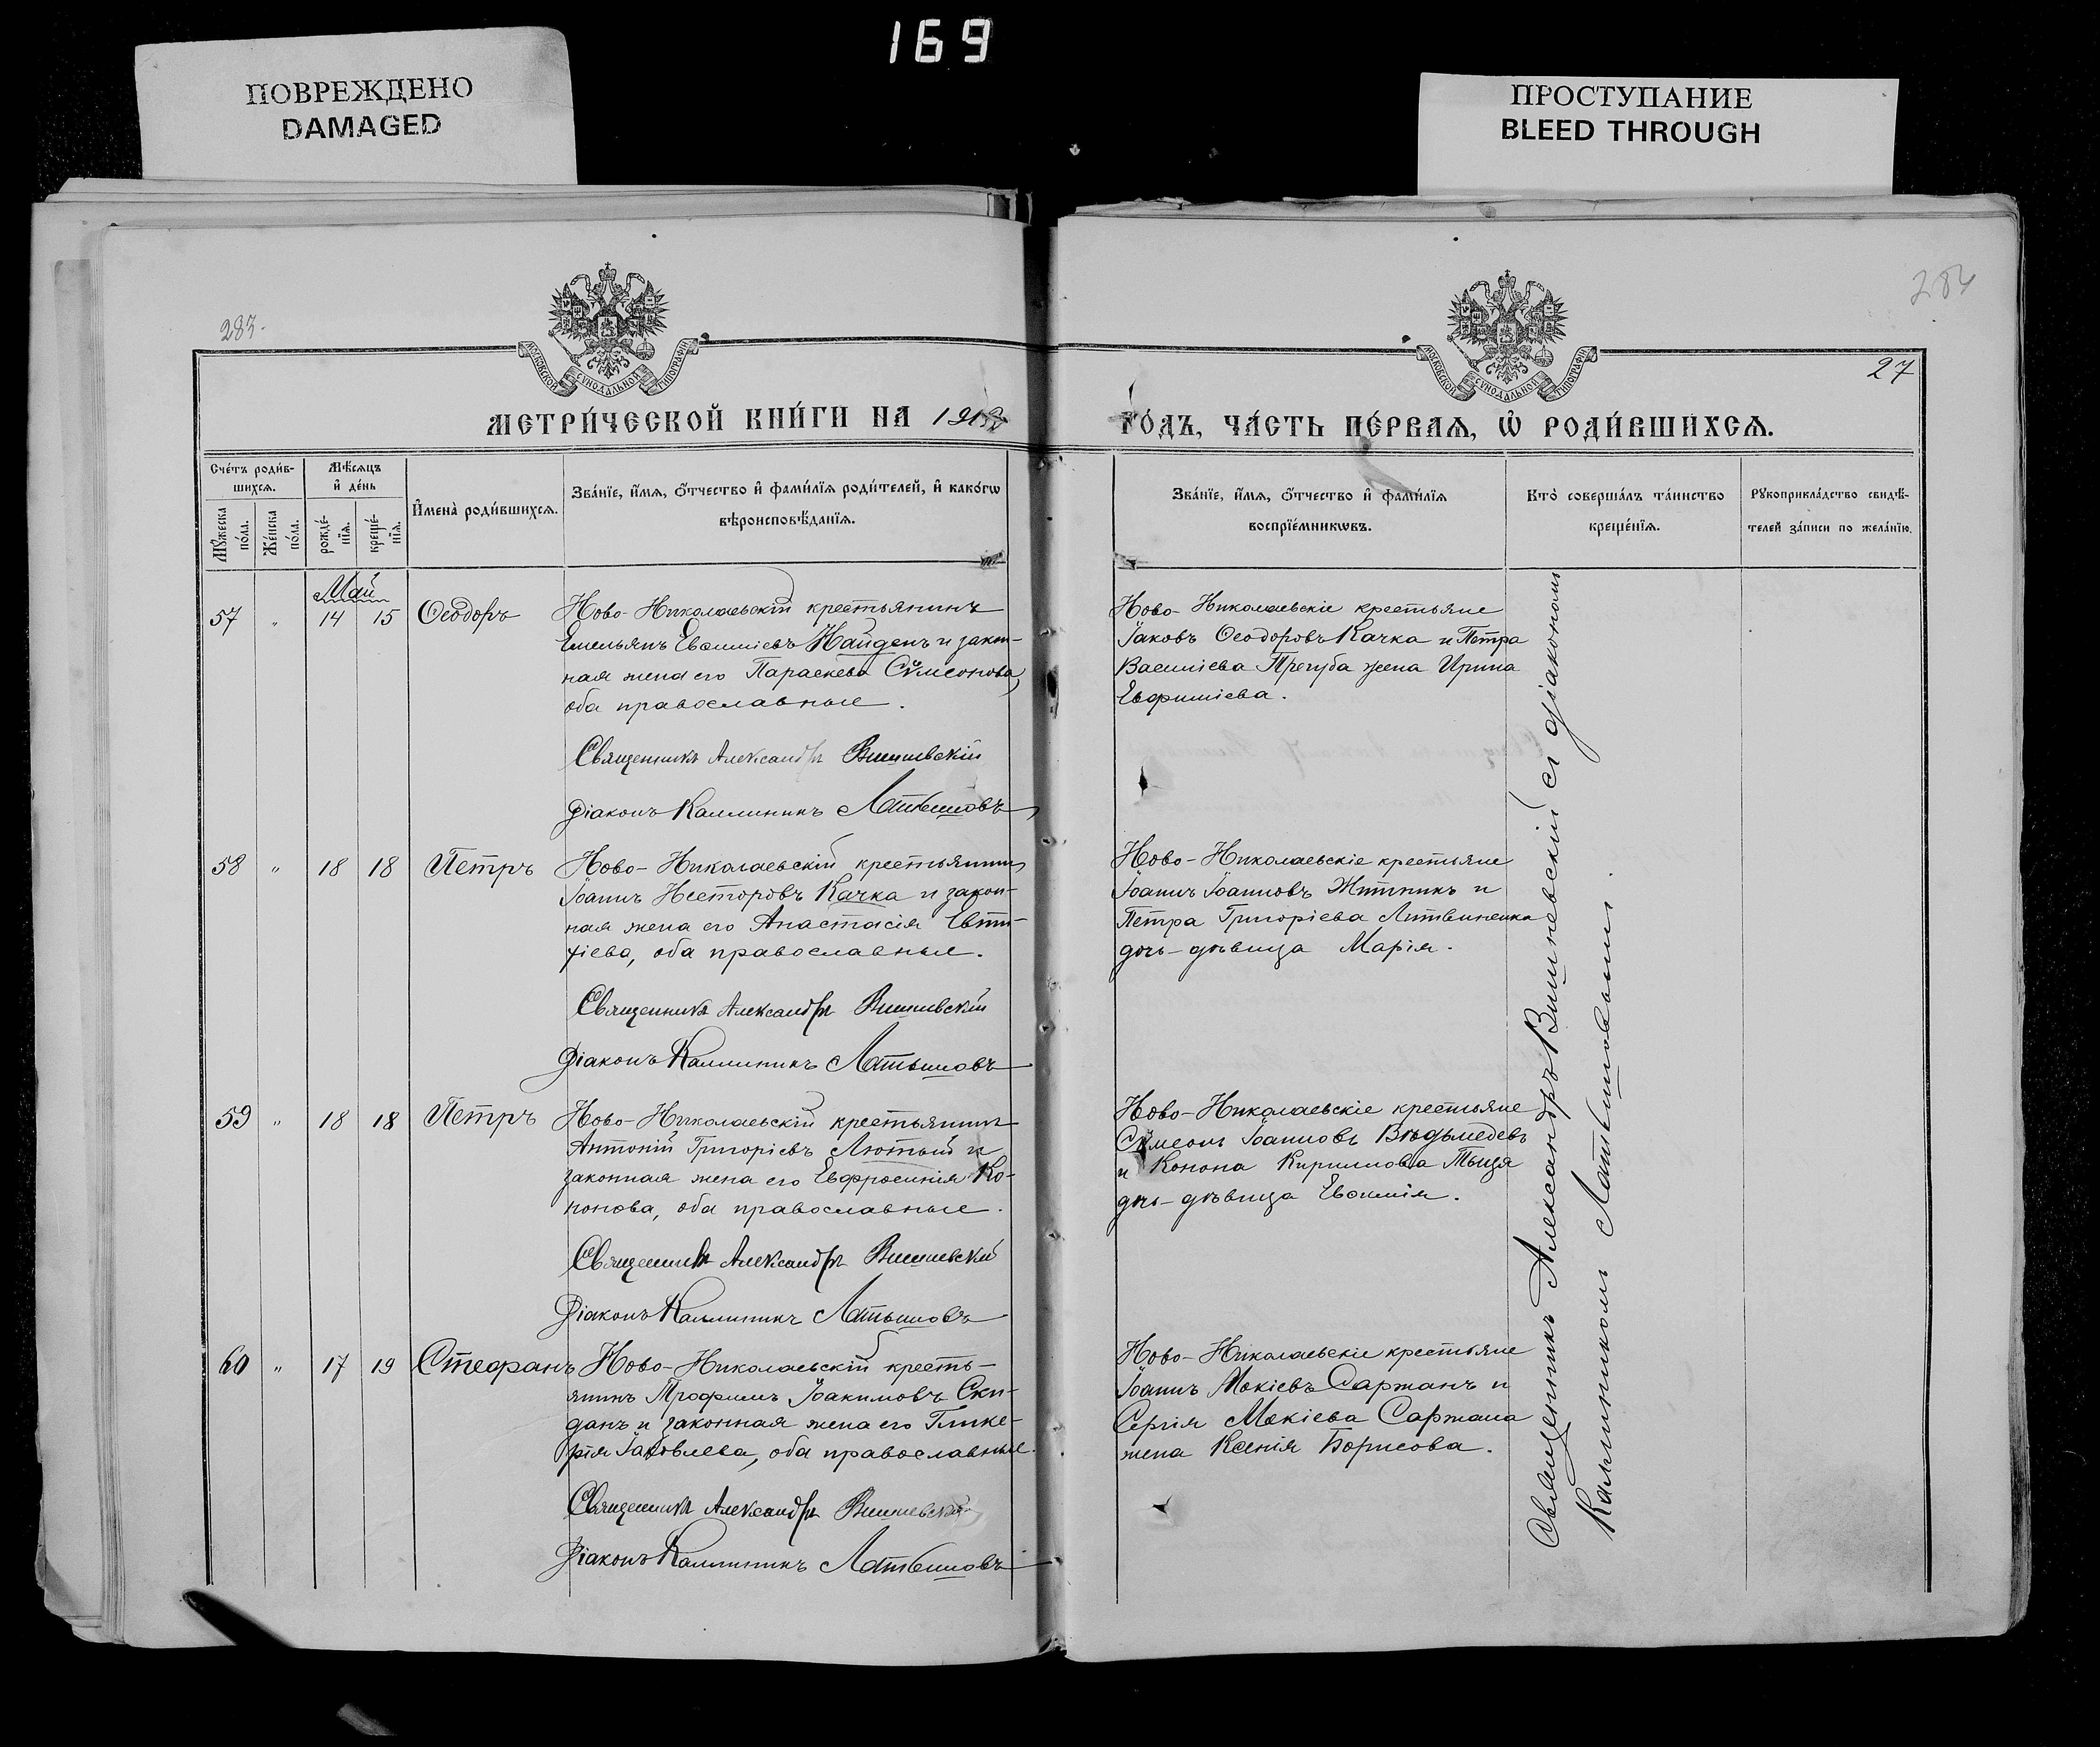 169
ПОВРЕЖДЕНО
DAMAGED
ПРОСТУПАНИЕ
BLEED THROUGH
283.
284
27
МОСКОВСКОЙ СѴНОДАЛЬНОЙ ТИПОГРАФІИ
МОСКОВСКОЙ СѴНОДАЛЬНОЙ ТИПОГРАФІИ
МЕТРИ́ЧЕСКОЙ КНИ́ГИ НА
ГО́ДЪ, ЧА́СТЬ ПЕ́РВАѦ, Ѡ҆ РОДИ́ВШИХСѦ.
Сче́тъ роди́в-
шихсѧ.
Мꙋ́жеска
по́ла.
Же́нска
по́ла.
Мѣ́сѧцъ
и҆ де́нь
рожде́-
нїѧ.
креще́-
нїѧ.
И҆мена̀ роди́вшихсѧ.
Зва́нїе, и҆́мѧ, ѻ҆́тчество и҆ фами́лїѧ роди́телей, и҆ како́гѡ
вѣроисповѣ́данїѧ.
Зва́нїе, и҆́мѧ, ѻ҆́тчество и҆ фами́лїѧ
воспрїе́мникѡвъ.
Кто̀ соверша́лъ та́инство
креще́нїѧ.
Рꙋкоприкла́дство свидѣ́-
телей за́писи по жела́нїю.
Май
57 " 14 15 Ѳеодоръ
Ново-Николаевскій крестьянинъ
Емельянъ Евѳиміевъ Найденъ и закон-
ная жена его Параскева Сѵмеонова,
оба православные.
Священникъ Александръ Вишневскій
Діаконъ Каллиникъ Латышовъ
Ново-Николаевскіе крестьяне
Іаковъ Ѳеодоровъ Качка и Петра
Василіева Прегуба жена Ирина
Евфиміева.
58 " 18 18 Петръ
Ново-Николаевскій крестьянинъ
Іоаннъ Несторовъ Качка и закон-
ная жена его Анастасія Евти-
хіева, оба православные.
Священникъ Александръ Вишневскій
Діаконъ Каллиникъ Латышовъ
Ново-Николаевскіе крестьяне
Іоаннъ Іоанновъ Житникъ и
Петра Григоріева Литвиненка
дочь-дѣвица Марія.
59 " 18 18 Петръ
Ново-Николаевскій крестьянинъ
Антоній Григоріевъ Лютый и
законная жена его Евфросинія Ко-
нонова, оба православные.
Священникъ Александръ Вишневскій
Діаконъ Каллиникъ Латышовъ
Ново-Николаевскіе крестьяне
Сѵмеонъ Іоанновъ Вѣдьмедевъ
и Конона Кириллова Тыця
дочь-дѣвица Евѳимія.
60 " 17 19 Стефанъ
Ново-Николаевскій кресть-
янинъ Трофимъ Іоакимовъ Ски-
данъ и законная жена его Глике-
рія Іаковлева, оба православные.
Священникъ Александръ Вишневскій
Діаконъ Каллиникъ Латышовъ
Ново-Николаевскіе крестьяне
Іоаннъ Мокіевъ Саржанъ и
Сергія Мокіева Саржана
жена Ксенія Борисова.
Священникъ Александръ Вишневскій съ діакономъ
Каллиникомъ Латышовымъ.